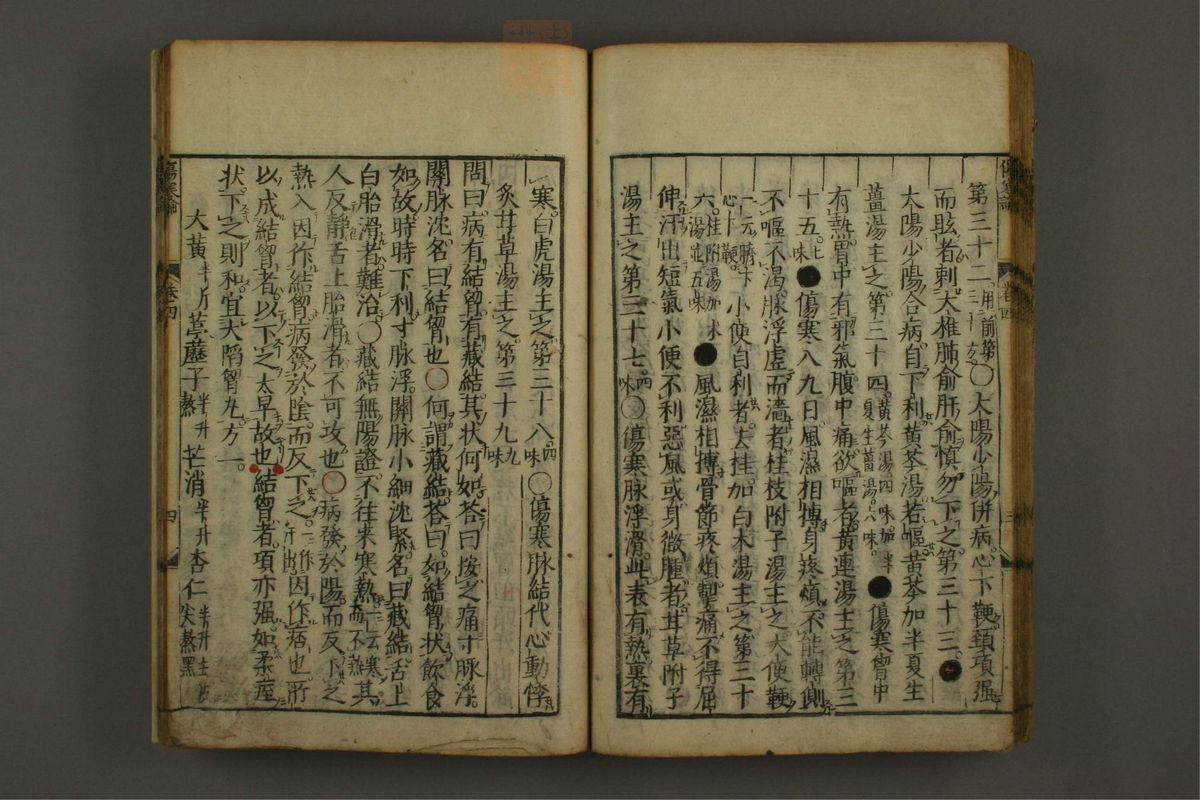 第三十二。用前第三十方。○太陽少陽併病。心下鞕。頸項强
而眩者。刺大椎肺俞肝俞。愼勿下之。第三十三。●
太陽少陽合病。自下利。黃芩湯。若嘔。黃芩加半夏生
薑湯主之。第三十四。黃芩湯四味。加半夏生薑湯。六味。●傷寒胷中
有熱。胃中有邪氣。腹中痛。欲嘔者。黃連湯主之。第三
十五。七味●傷寒八九日。風濕相摶。身疼煩。不能轉側。
不嘔不渴。脉浮虛而濇者。桂枝附子湯主之。大便鞕
一云臍下心下鞕。小便自利者。去桂加白术湯主之。第三十
六。桂附湯加术湯並五味●風濕相摶。骨節疼煩。掣痛不得屈
伸。汗出短氣。小便不利。惡風。或身微腫者。甘草附子
湯主之。第三十七。四味○傷寒脉浮滑。此表有熱。裏有
寒。白虎湯主之。第三十八。四味○傷寒脉結代。心動悸。
炙甘草湯主之。第三十九。九味
問曰。病有結胷。有藏結。其狀何如。答曰。按之痛。寸脉浮。
關脉沈。名曰結胷也。○何謂藏結。答曰。如結胷狀。飲食
如故。時時下利。寸脉浮。關脉小細沈緊。名曰藏結。舌上
白胎滑者難治。○藏結無陽證。不往來寒熱。一云寒而不熱其
人反靜。舌上胎滑者。不可攻也。○病發於陽。而反下之。
熱入因作結胷。病發於陰。而反下之。一作汗出因作痞也。所
以成結胷者。以下之太早故也。結胷者。項亦强。如柔痓
狀。下之則和。宜大陷胷丸。方一。
大黃半斤葶藶子半升熬芒消半升杏仁半升去皮尖熬黑
傷寒論
卷四
四
傷寒論
卷四
三